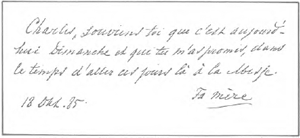 Charles, souviens toi que c'est aujourd'-
hui Dimanche et que tu m'as promis, dans
le temps d'aller ces jours là à la Messe.
Ta Mère
18 Oct. 85.